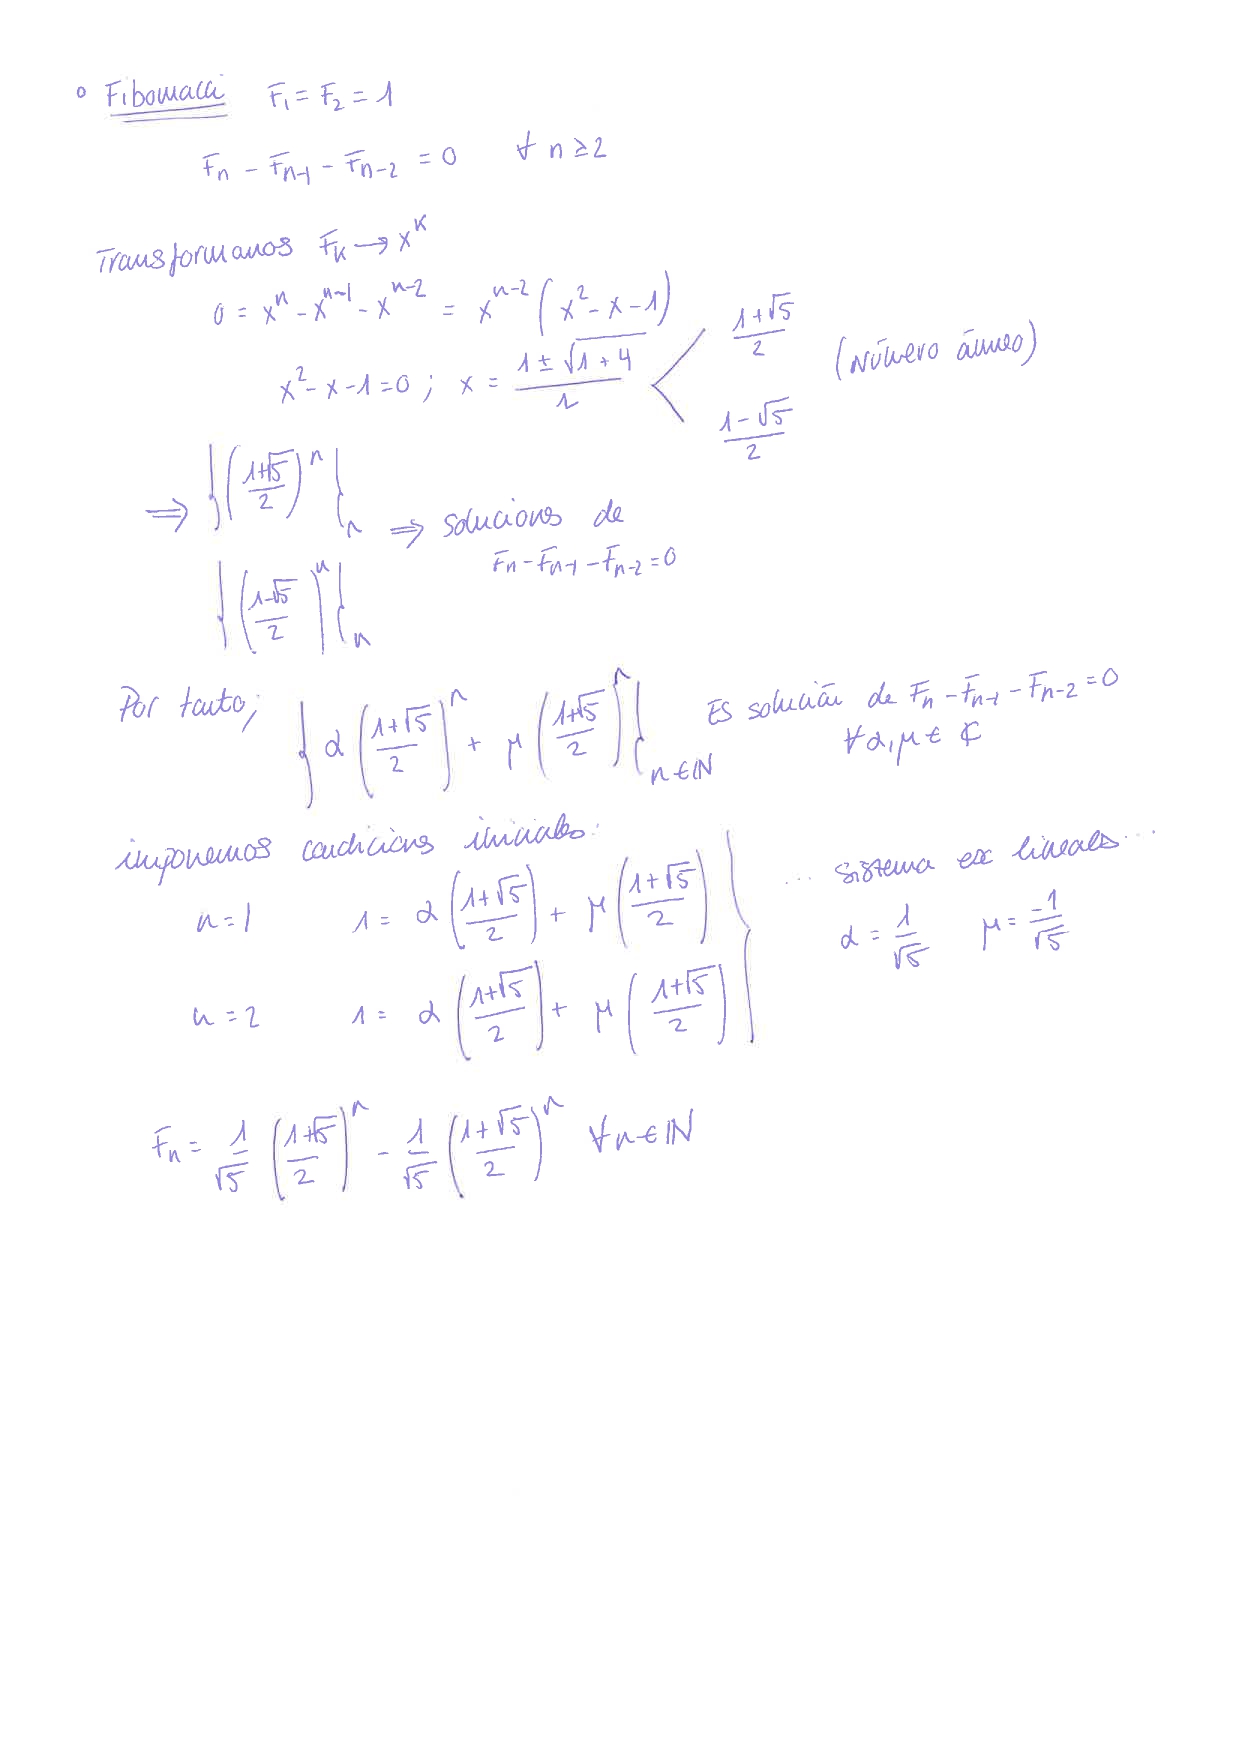 Fibonacci F₁ = F₂ = 1
Fₙ - Fₙ₋₁ - Fₙ₋₂ = 0 ∀ n ≥ 2
Transformamos Fₖ → xᴷ
0 = xⁿ - xⁿ⁻¹ - xⁿ⁻² = xⁿ⁻² (x² - x - 1)
x² - x - 1 = 0 ; x = (1 ± √(1 + 4))/2 < (1+√5)/2 (Número áureo)
(1-√5)/2
⇒ {((1+√5)/2)ⁿ}ₙ ⇒ soluciones de
Fₙ - Fₙ₋₁ - Fₙ₋₂ = 0
{((1-√5)/2)ⁿ}ₙ
Por tanto; {α((1+√5)/2)ⁿ + μ((1+√5)/2)ⁿ}n∈ℕ Es solución de Fₙ - Fₙ₋₁ - Fₙ₋₂ = 0
∀ α, μ ∈ ℂ
imponemos condiciones iniciales:
n = 1 1 = α((1+√5)/2) + μ((1+√5)/2) } ... sistema ec lineales ...
n = 2 1 = α((1+√5)/2) + μ((1+√5)/2) α = 1/√5 μ = -1/√5
Fₙ = 1/√5 ((1+√5)/2)ⁿ - 1/√5 ((1+√5)/2)ⁿ ∀ n ∈ ℕ